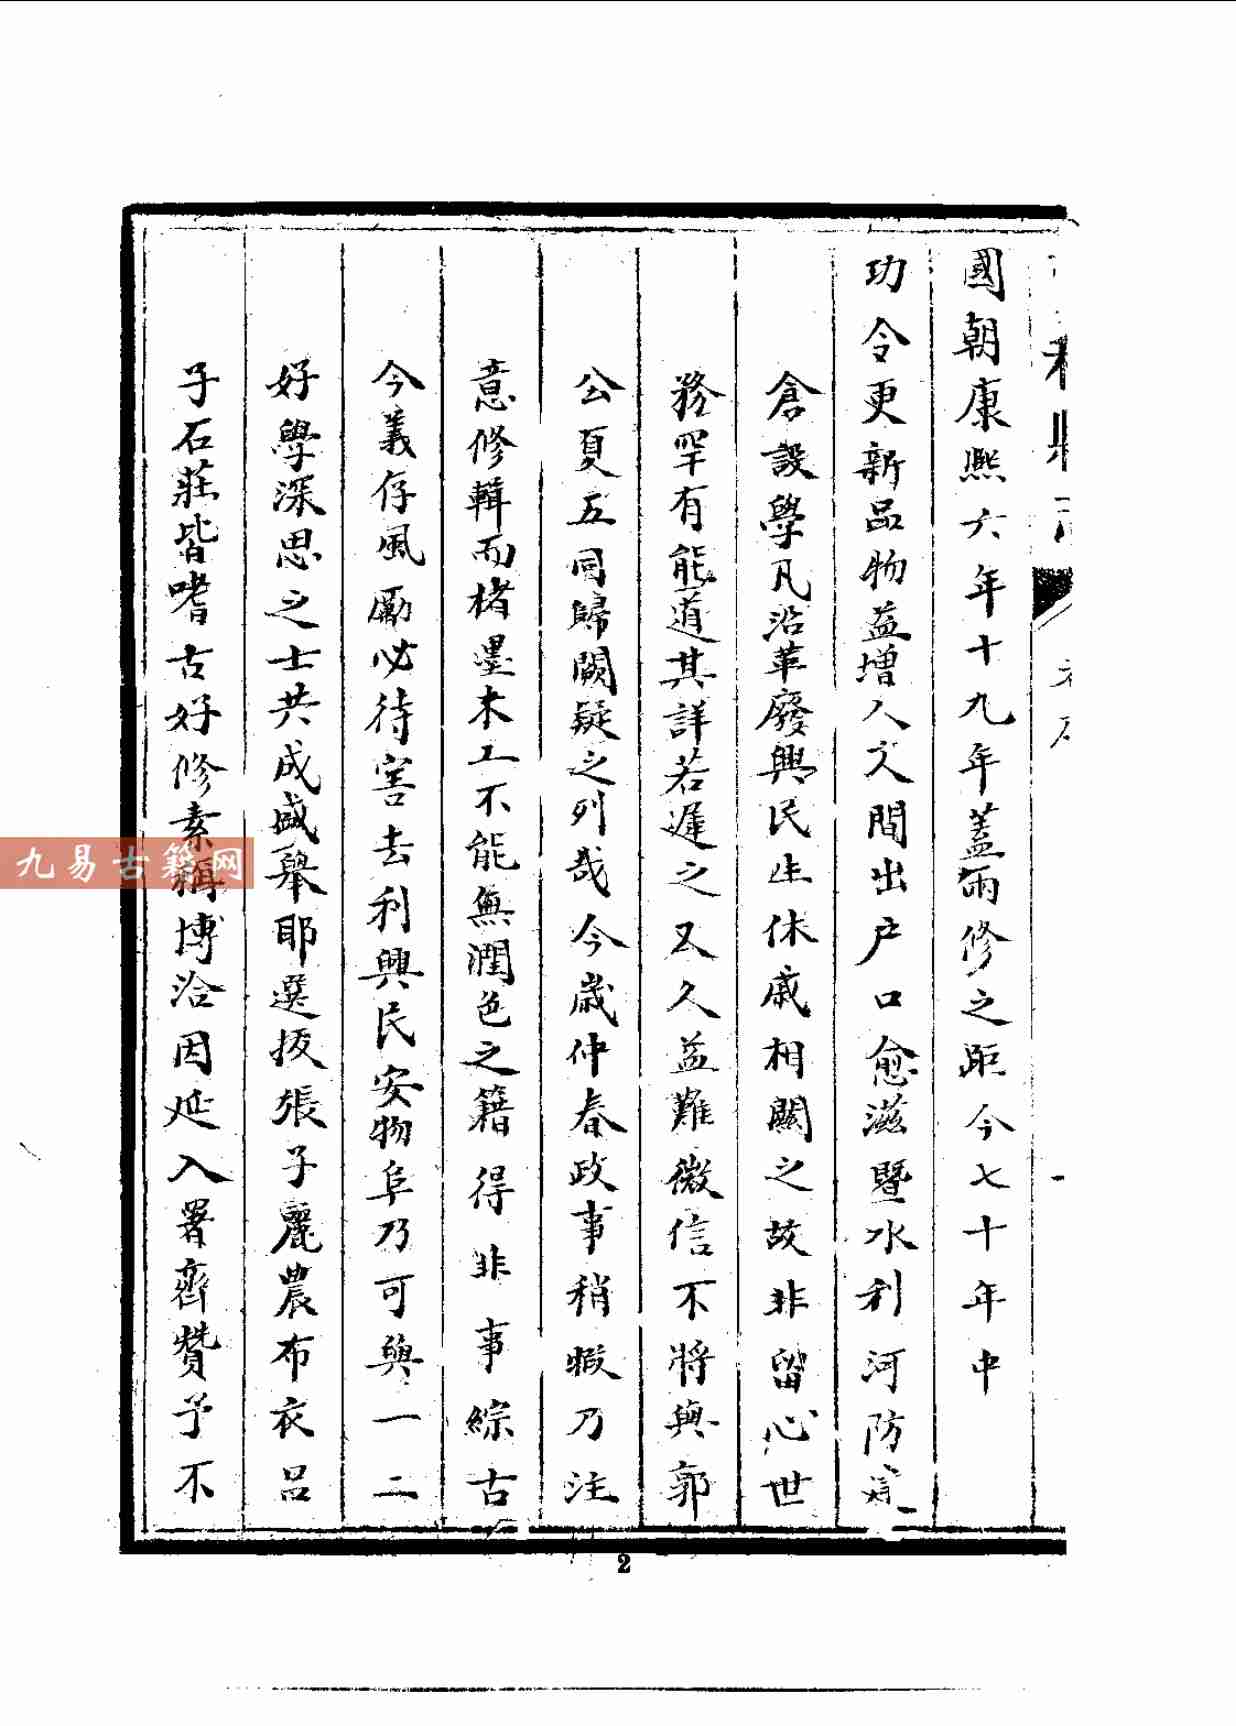 國朝康熙六年十九年蓋兩修之距今七十年中
功令更新品物益增人文間出戶口愈滋暨水利河防
倉設學凡沿革廢興民生休戚相關之故非留心世
務罕有能道其詳若遲之又久益難徵信不將與郭
公夏五同歸闕疑之列哉今歲仲春政事稍暇乃注
意修輯而楮墨木工不能無潤色之籍得非事綜古
今義存風勵必待害去利興民安物阜乃可與一二
好學深思之士共成盛舉耶選拔張子麗農布衣呂
子石莊皆嗜古好修素稱博洽因延入署齊贊予不
九易古籍网
2